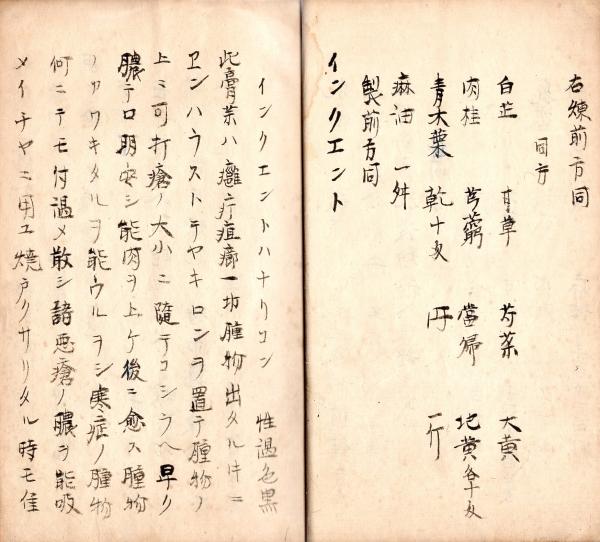 右練前方同
同方
白芷 甘草 芍薬 大黄
肉桂 芎藭 當帰 地黄各十匁
青木葉 乾十匁 丹 一斤
麻油 一舛
製前方同
インクエント
インクエントハナリコン 性温色黒
此膏薬ハ癰疔疽瘤一切腫物出タル時ニ
ヱンハラストテヤキロンヲ置テ腫物ノ
上ニ可打瘡ノ大小ニ随テコシラヘ早ク
膿テロ明安シ能肉ヲ上ケ後ニ愈ス腫物
ノカワキタルヲ能ウルヲシ寒症ノ腫物
何ニテモ付温メ散シ諸悪瘡ノ膿ヲ能吸
メイチヤニ用ユ焼戸クサリタル時モ佳